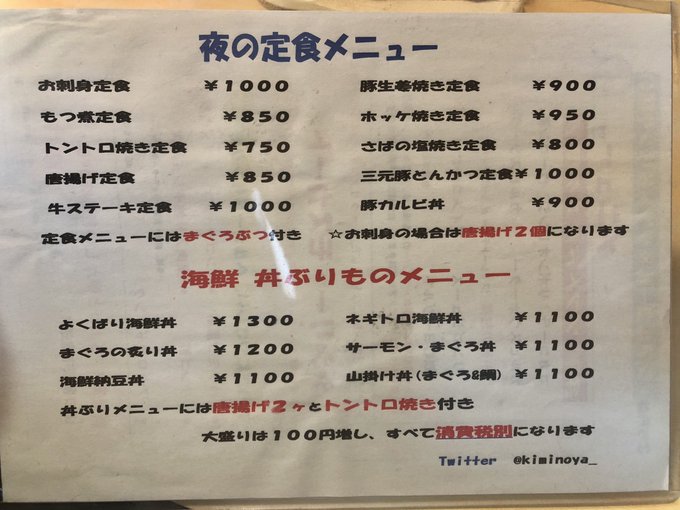 夜の定食メニュー
お刺身定食 ￥1000 豚生姜焼き定食 ￥900
もつ煮定食 ￥850 ホッケ焼き定食 ￥950
トントロ焼き定食 ￥750 さばの塩焼き定食 ￥800
唐揚げ定食 ￥850 三元豚とんかつ定食￥1000
牛ステーキ定食 ￥1000 豚カルビ丼 ￥900
定食メニューにはまぐろぶつ付き ☆お刺身の場合は唐揚げ2個になります
海鮮 丼ぶりものメニュー
よくばり海鮮丼 ￥1300 ネギトロ海鮮丼 ￥1100
まぐろの炙り丼 ￥1200 サーモン・まぐろ丼 ￥1100
海鮮納豆丼 ￥1100 山掛け丼(まぐろ&鯛) ￥1100
丼ぶりメニューには唐揚げ2ヶとトントロ焼き付き
大盛りは100円増し、すべて消費税別になります
Twitter @kiminoya_